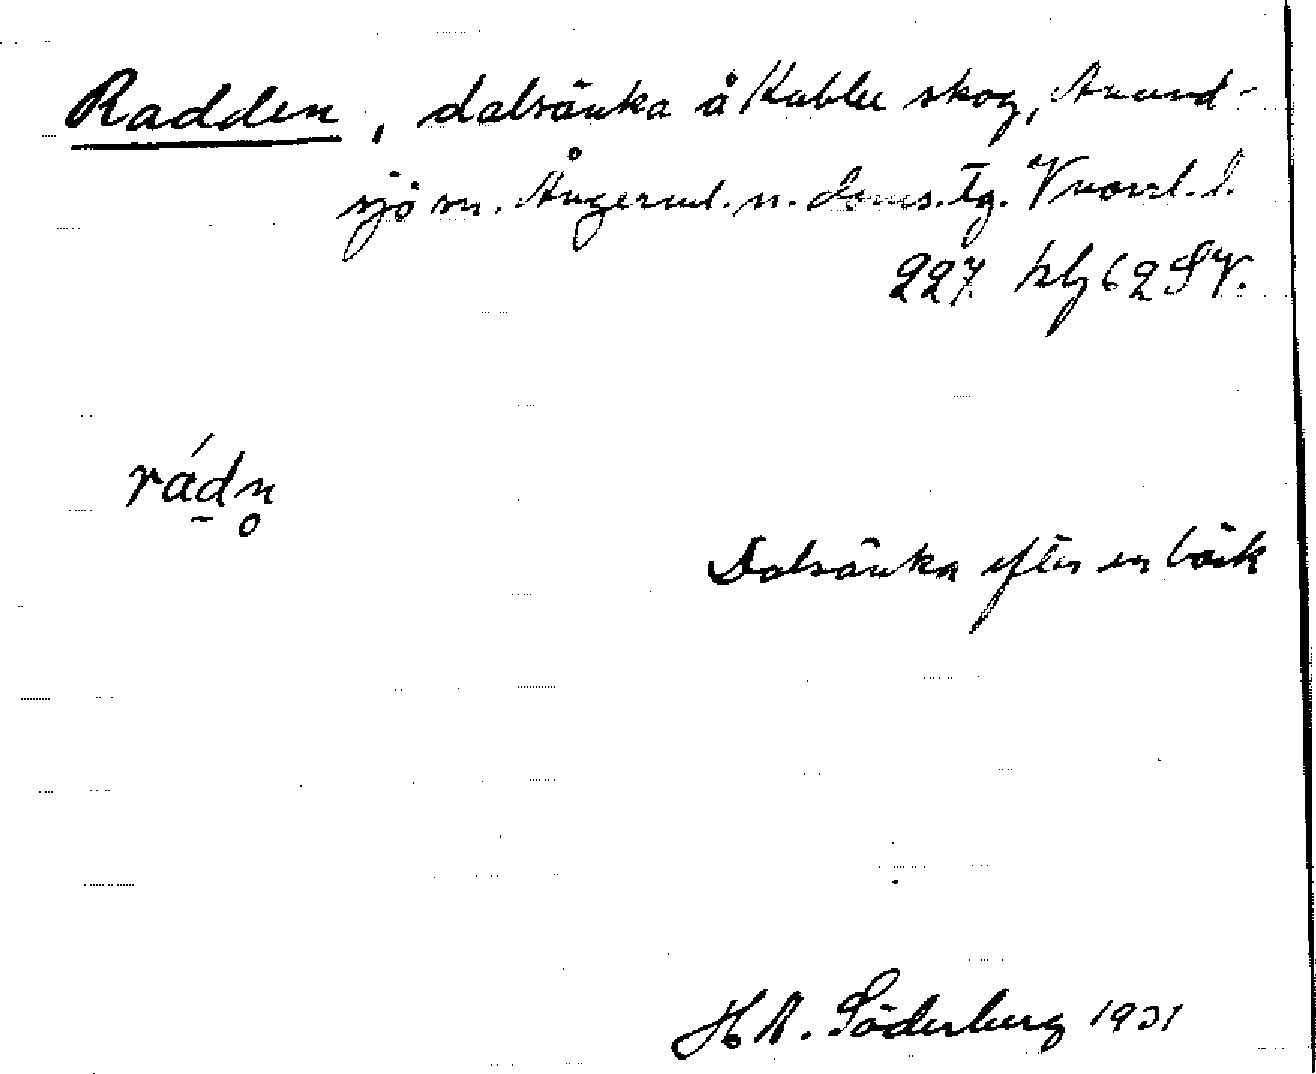 Radden, dalsänka å Kubbe skog, Anund-
sjö sn. Ångerml. n. doms. tg. Vnorrl. l.
227. blg 62 SV.
rádn̥
Dalsänka efter en bäck
H A. Söderberg 1931